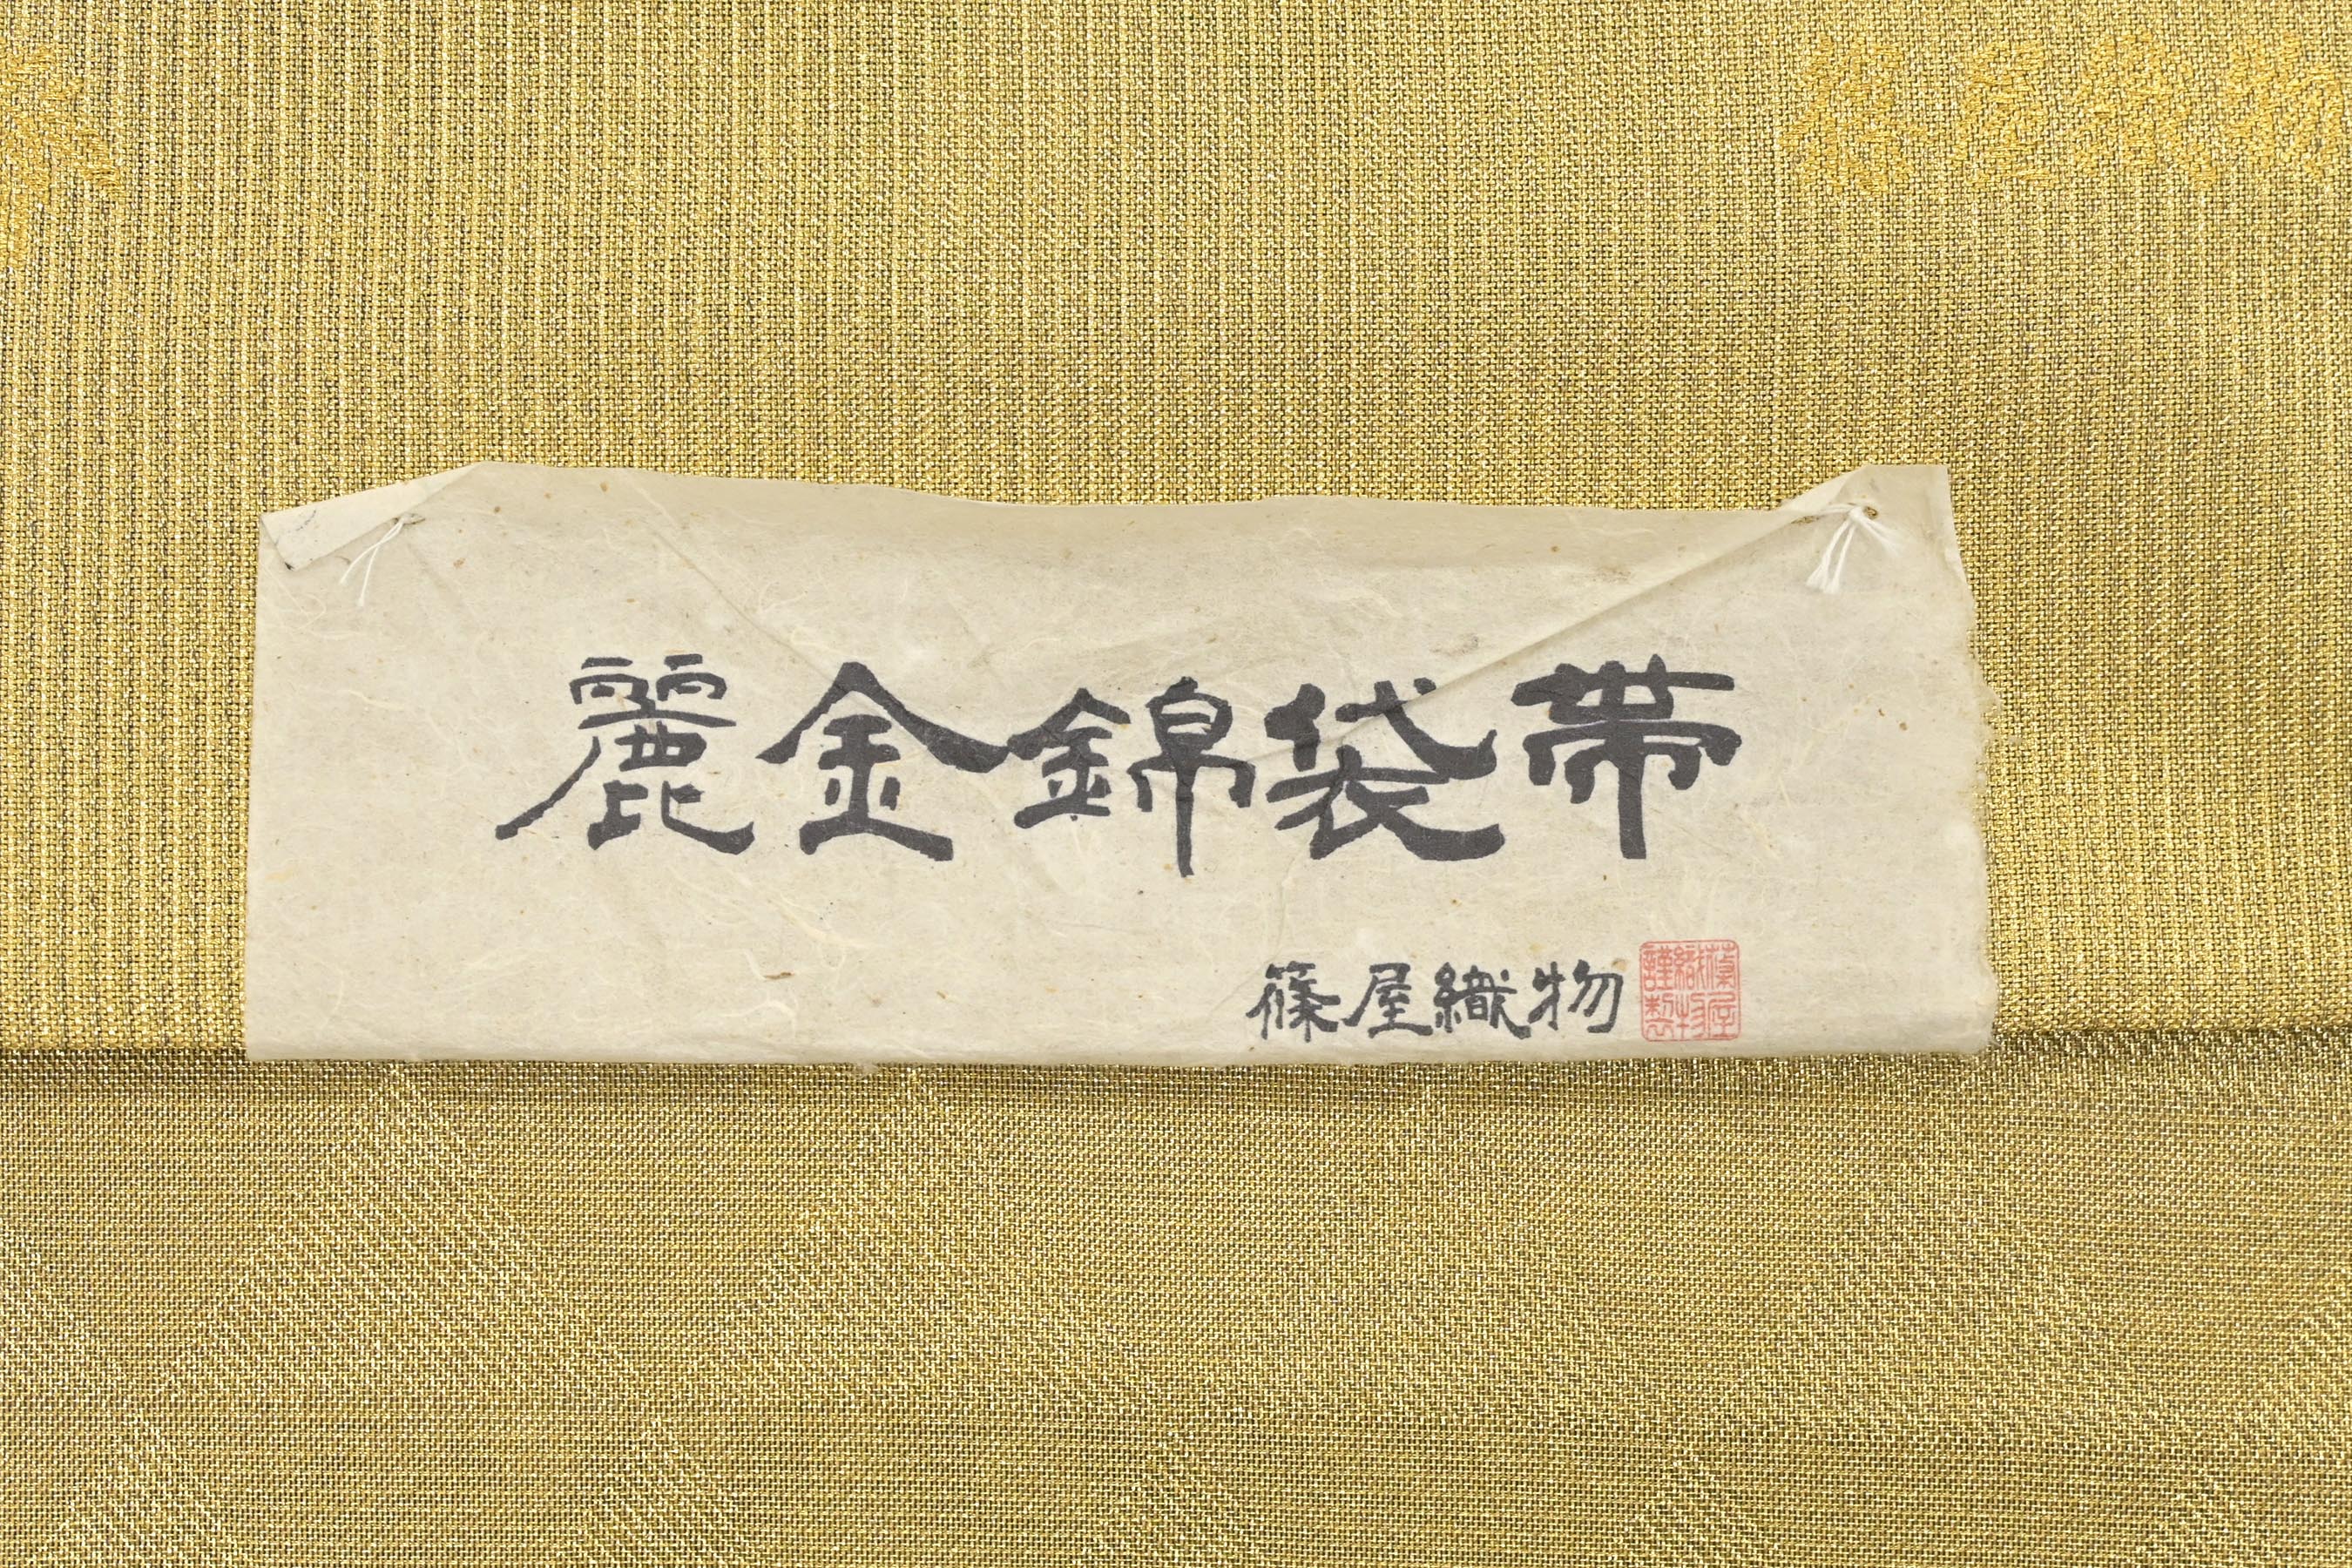 麗金錦袋帯
篠屋織物
篠屋織物謹製